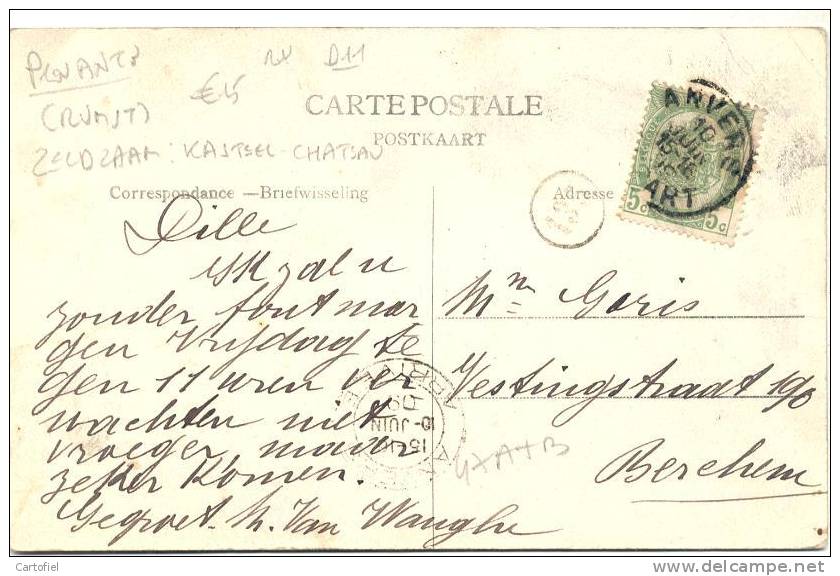 RX D11
€ 15
(RUMST)
ZELDZAAM: KASTEEL-CHATEAU
CARTE POSTALE
POSTKAART
Correspondance — Briefwisseling
Adresse
ANVERS
10
JUIN
ART
5c 5c
Dille
Ik zal u
zonder fout mar
gen Vrijdag te
gen 11 uren ver
wachten niet
vroeger, maar
zeker komen.
Gegroet. h. Van
Mn Goris
Vestingstraat 190
Berchem
10-JUIN
09
47A+B
Cartofiel
www.delcampe.net